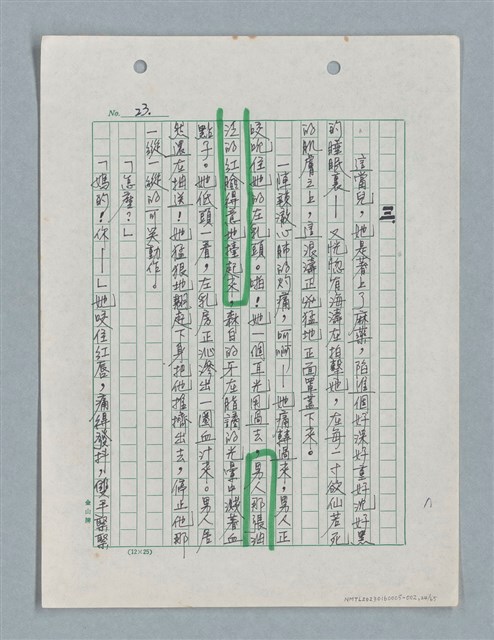 No. 23.
三、
這當兒，她是著上了麻藥，陷進個好深好重好沈好黑
的睡眠裏——又恍惚有海濤在拍擊她，在每一寸欲仙若死
的肌膚之上，風浪濤正兇猛地正面罩蓋下來。
一陣錐澈心肺的灼痛，呵啊——她痛轉過來，男人正
咬吮住她的左乳頭。啪！她一個耳光甩過去，男人那張油
漬的紅臉得意地撞起來，森白的牙在脂譎的光暈中濺著血
點子。她低頭一看，左乳房正沁滲出一圈血汁來。男人居
然還在抽送！她猛狠地翻起下身把他推擠出去，停止他那
一縱一縱的可笑動作。
「怎麼？」
「媽的！你——」她咬住紅唇，痛得發抖，雙手緊緊
金山牌
(12×25)